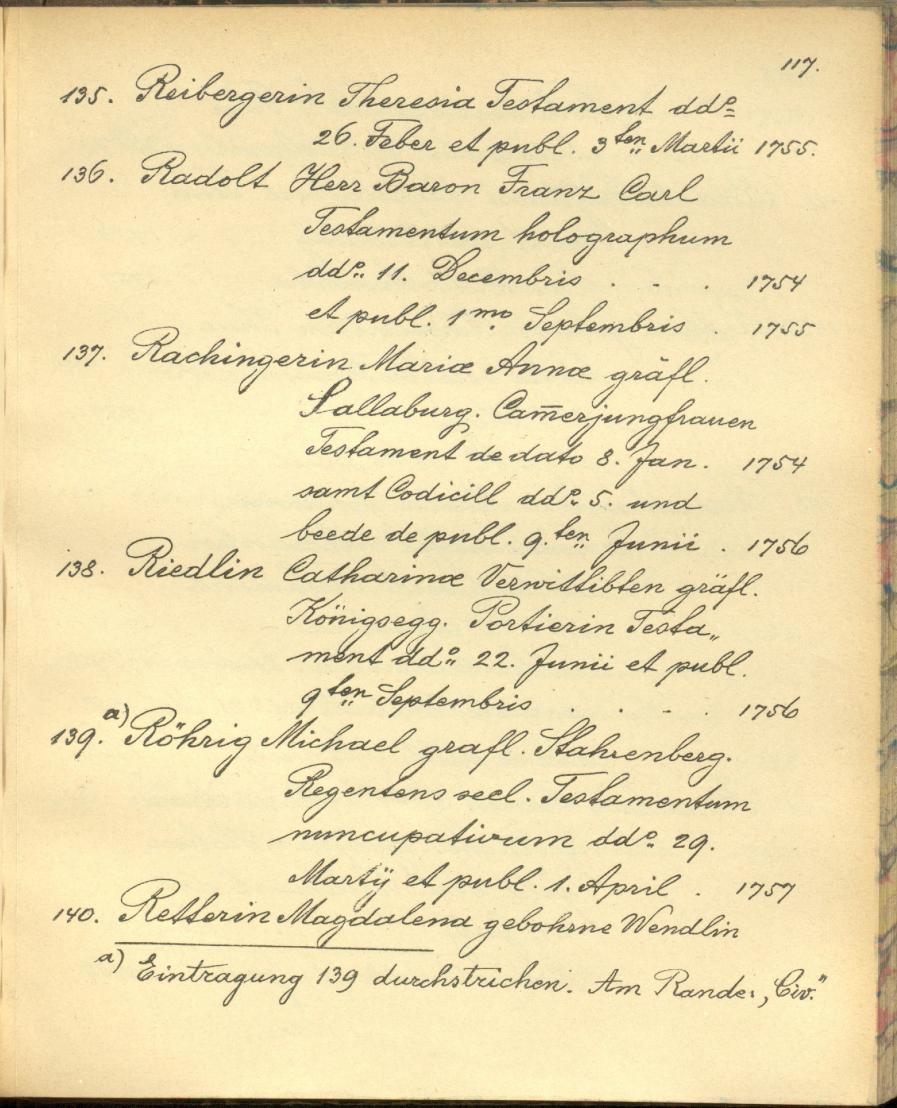 117.
135. Reibergerin Theresia Testament ddᵒ
26. Feber et publ. 3ten Martii 1755.
136. Radolt Herr Baron Franz Carl
Testamentum holographum
ddᵒ 11. Decembris . . . 1754
et publ. 1mo Septembris . 1755
137. Rachingerin Mariæ Annæ gräfl.
Sallaburg. Cam̅erjungfrauen
Testament de dato 8. Jan. 1754
samt Codicill ddᵒ 5. und
beede de publ. 9.ten Junii . 1756
138. Riedlin Catharinæ Verwittibten gräfl.
Königsegg. Portierin Testa„
ment ddᵒ 22. Junii et publ.
9ten Septembris . . . . 1756
139. a) Röhrig Michael grafl. Stahrenberg.
Regentens seel. Testamentum
nuncupativum ddᵒ 29.
Martÿ et publ. 1. April . 1757
140. Retterin Magdalena gebohrne Wendlin
a) Eintragung 139 durchstrichen. Am Rande: „Civ."